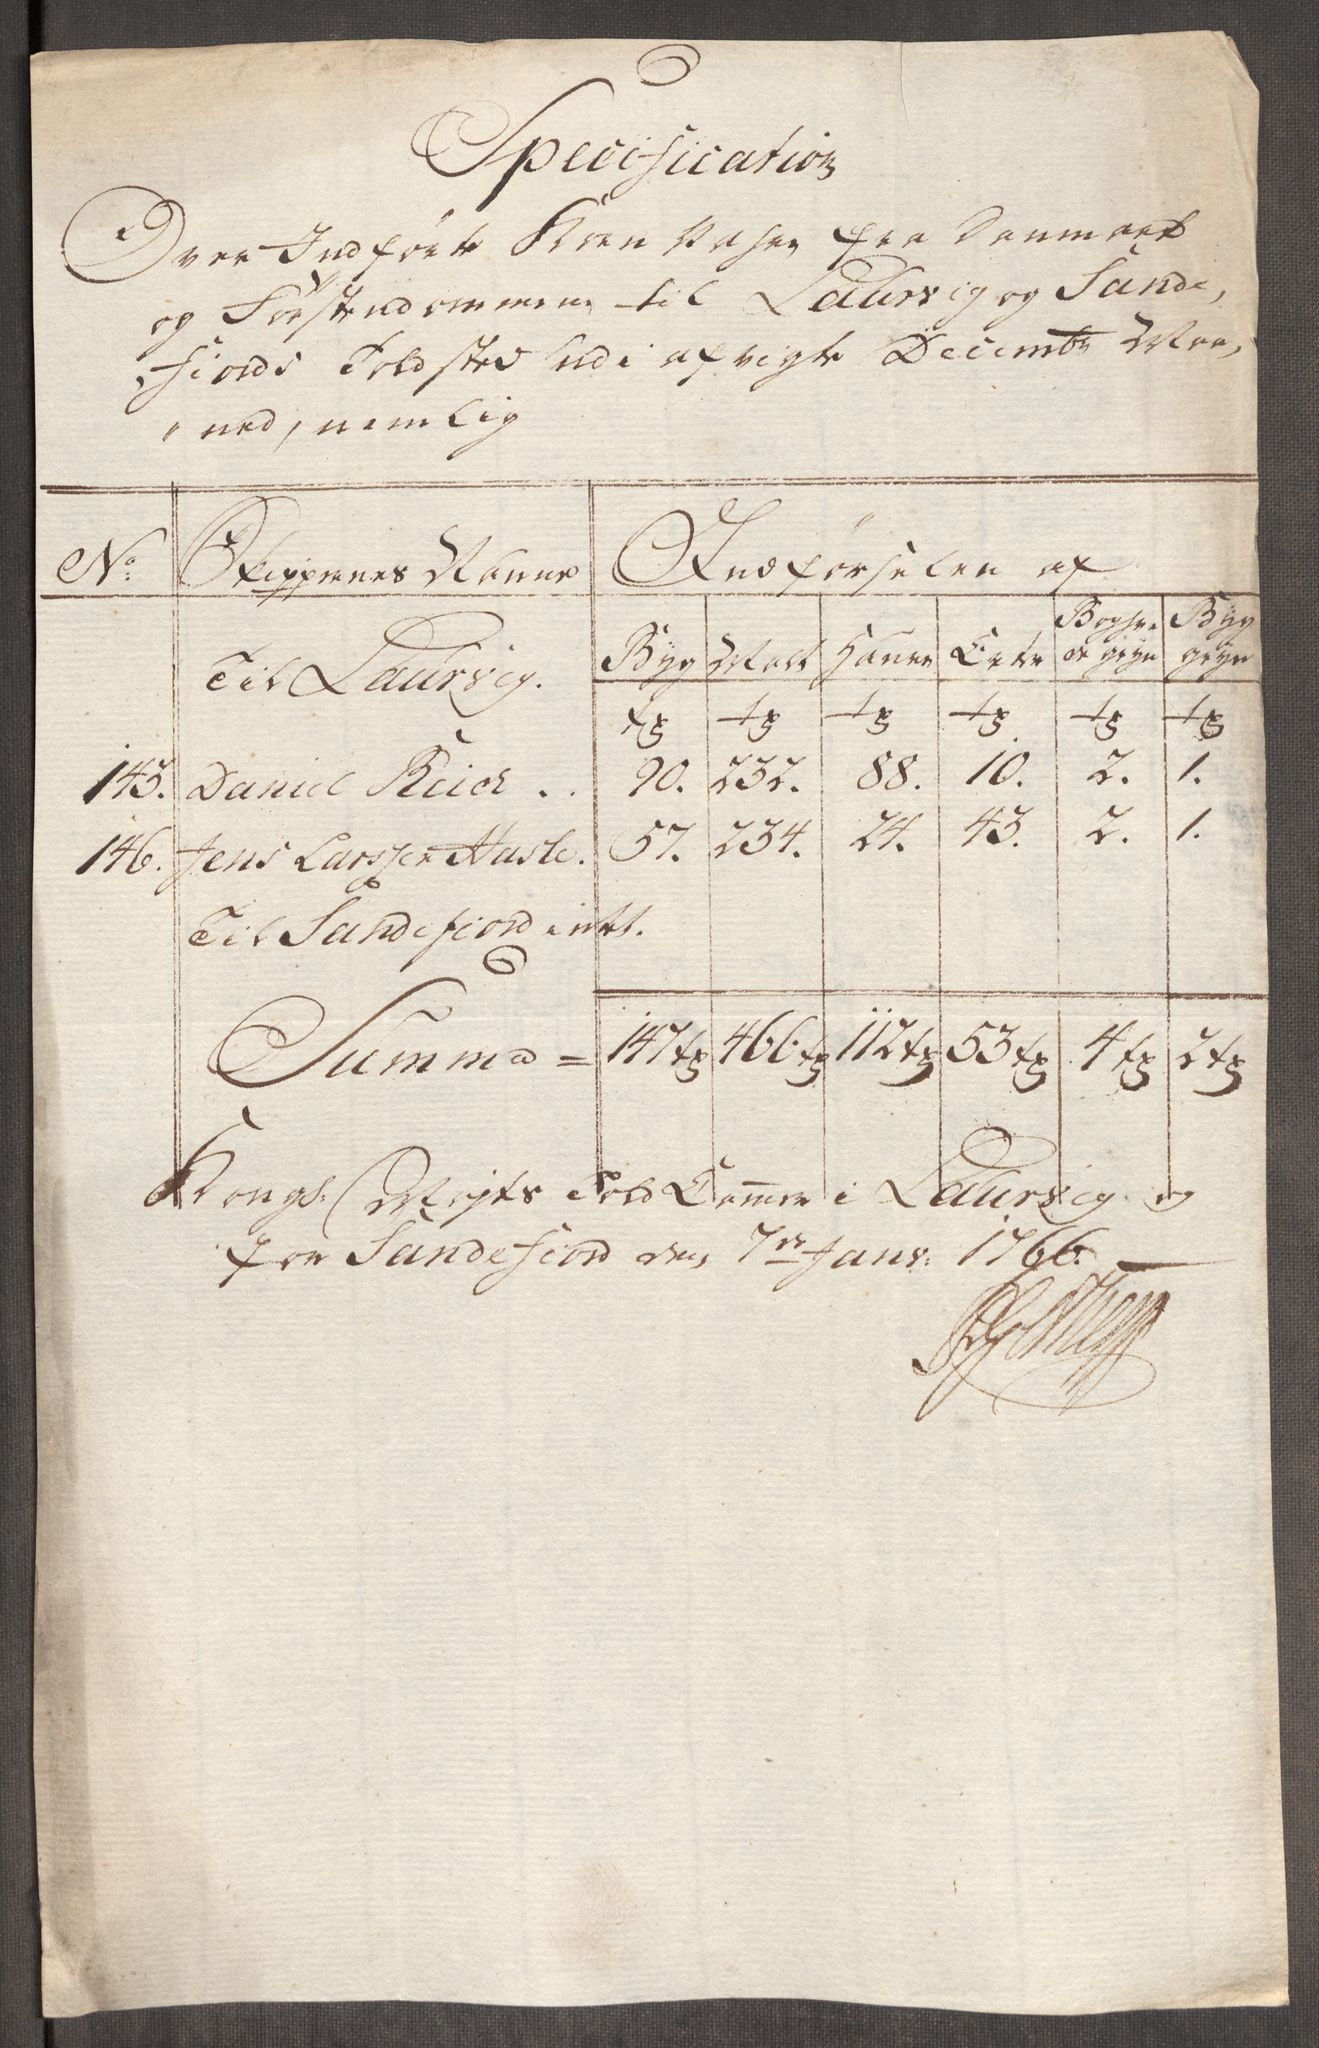 Specification
Over Indførte Korn Vahre fra Danmark
og Förstendommene til Laurvig og Sande,
fiords Told sted udi afvigte Decembr Maa,
ned, nemlig
No: Skippernes Nafne Indførselen af
Til Laurvig. Byg Malt Hafre Erter Boghve Byg
de gryn gryn
tr tr tr tr tr tr
143. Daniel Reich .. 90. 232. 88. 10. 2. 1.
146. Jens Larssen Husle. 57. 234. 24. 43. 2. 1.
Til Sandefiord intet.
Summa = 147 tr 466 tr 112 tr 53 tr 4 tr 2 tr
Kongl: Mayts Told Cammer i Laurvig og
for Sandefiord den 7de Janv: 1766.